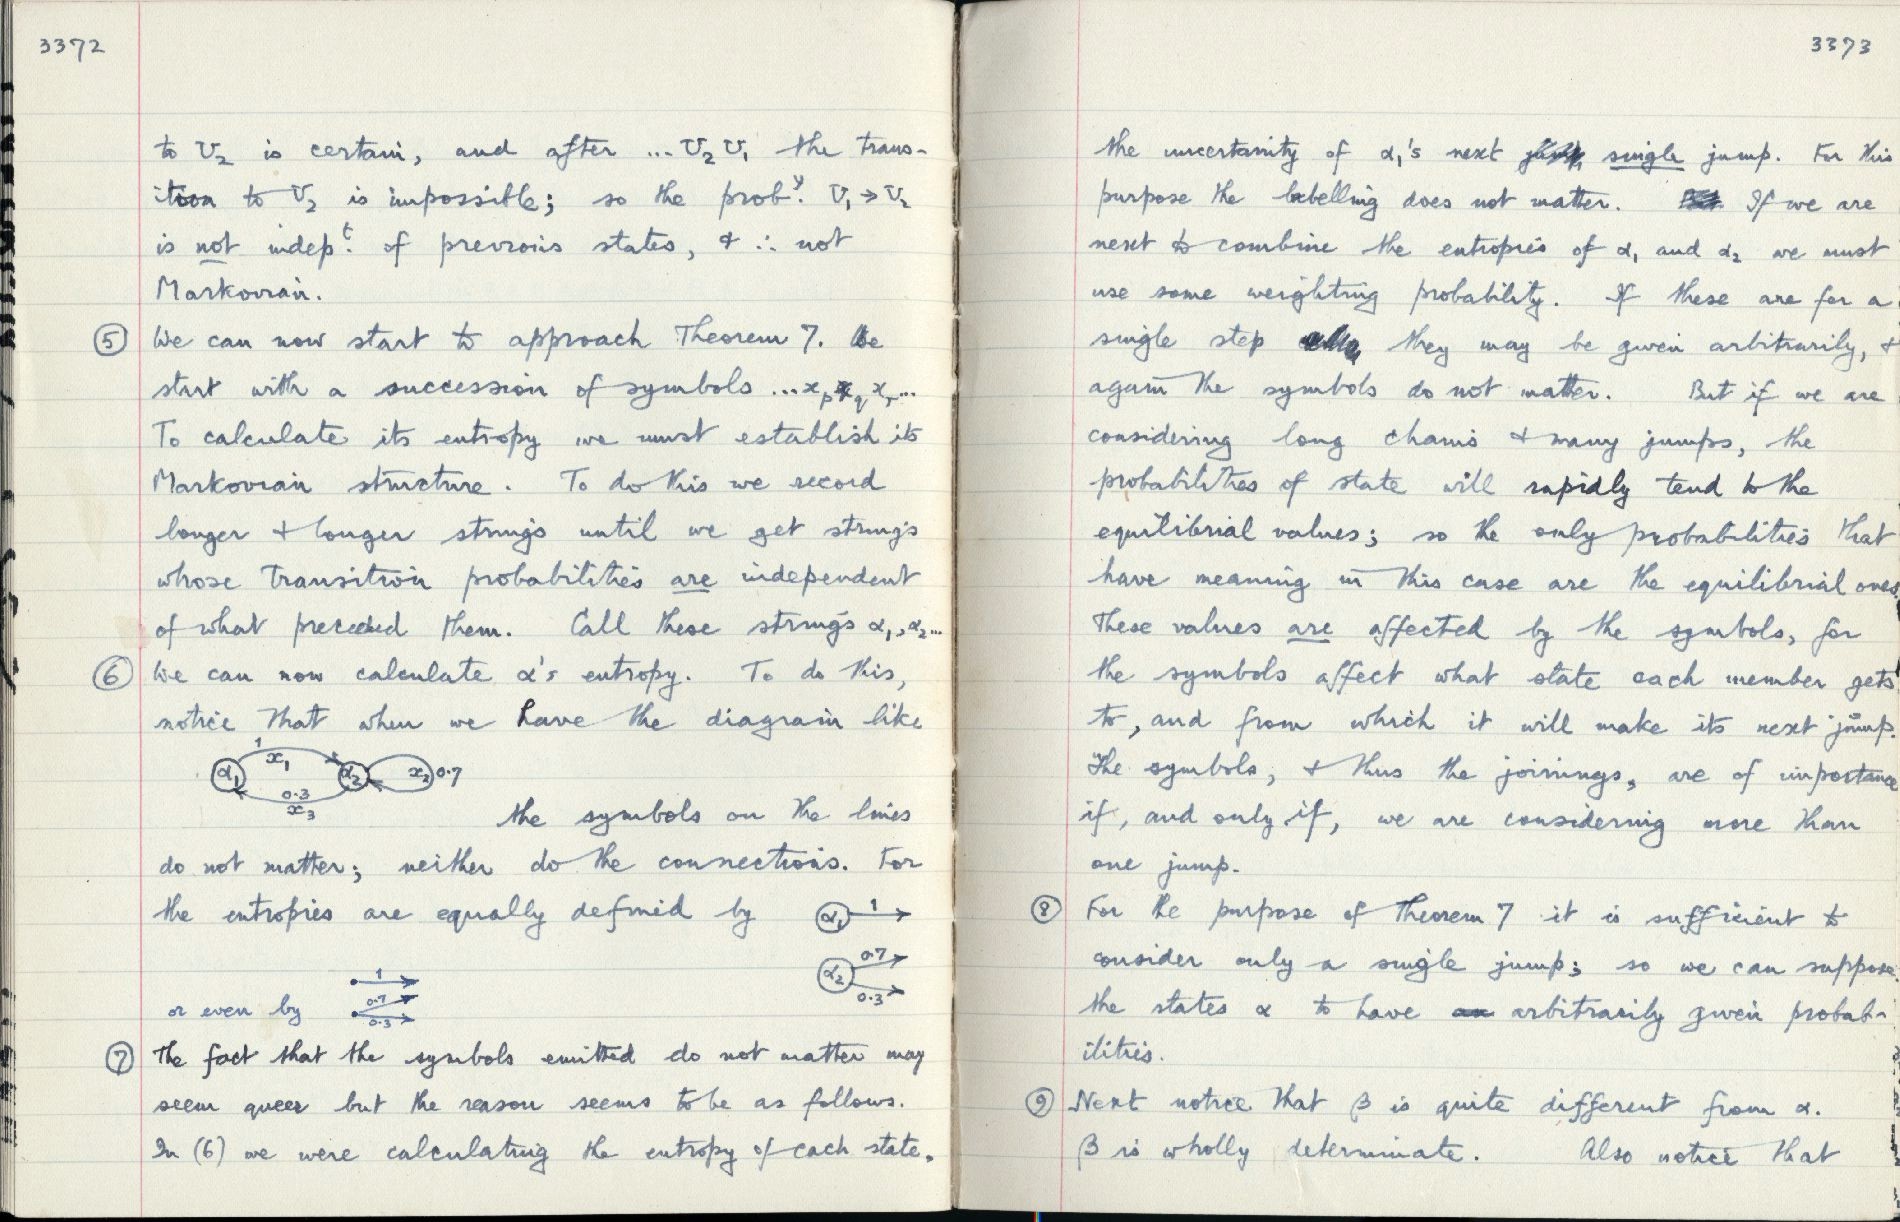 3372
to U₂ is certain, and after ... U₂ U₁ the trans-
ition to U₂ is impossible; so the prob^y. U₁ → U₂
is not indep^t. of previous states, & ∴ not
Markovian.
⑤ We can now start to approach Theorem 7. We
start with a succession of symbols ...x_p x_q x_r...
To calculate its entropy we must establish its
Markovian structure. To do this we record
longer & longer strings until we get strings
whose transition probabilities are independent
of what preceded them. Call these strings α₁, α₂...
⑥ We can now calculate α's entropy. To do this,
notice that when we have the diagram like
1
x₁
α₁ α₂ x₂ 0.7
0.3
x₃
the symbols on the lines
do not matter; neither do the connections. For
the entropies are equally defined by α₁ 1
α₂ 0.7
0.3
or even by 1
0.7
0.3
⑦ The fact that the symbols emitted do not matter may
seem queer but the reason seems to be as follows.
In (6) we were calculating the entropy of each state,
3373
the uncertainty of α₁'s next single jump. For this
purpose the labelling does not matter. If we are
next to combine the entropies of α₁ and α₂ we must
use some weighting probability. If these are for a
single step they may be given arbitrarily, &
again the symbols do not matter. But if we are
considering long chains & many jumps, the
probabilities of state will rapidly tend to the
equilibrial values; so the only probabilities that
have meaning in this case are the equilibrial ones.
These values are affected by the symbols, for
the symbols affect what state each member gets
to, and from which it will make its next jump.
The symbols, & thus the joinings, are of importance
if, and only if, we are considering more than
one jump.
⑧ For the purpose of Theorem 7 it is sufficient to
consider only a single jump; so we can suppose
the states α to have arbitrarily given probab-
ilities.
⑨ Next notice that β is quite different from α.
β is wholly determinate. Also notice that